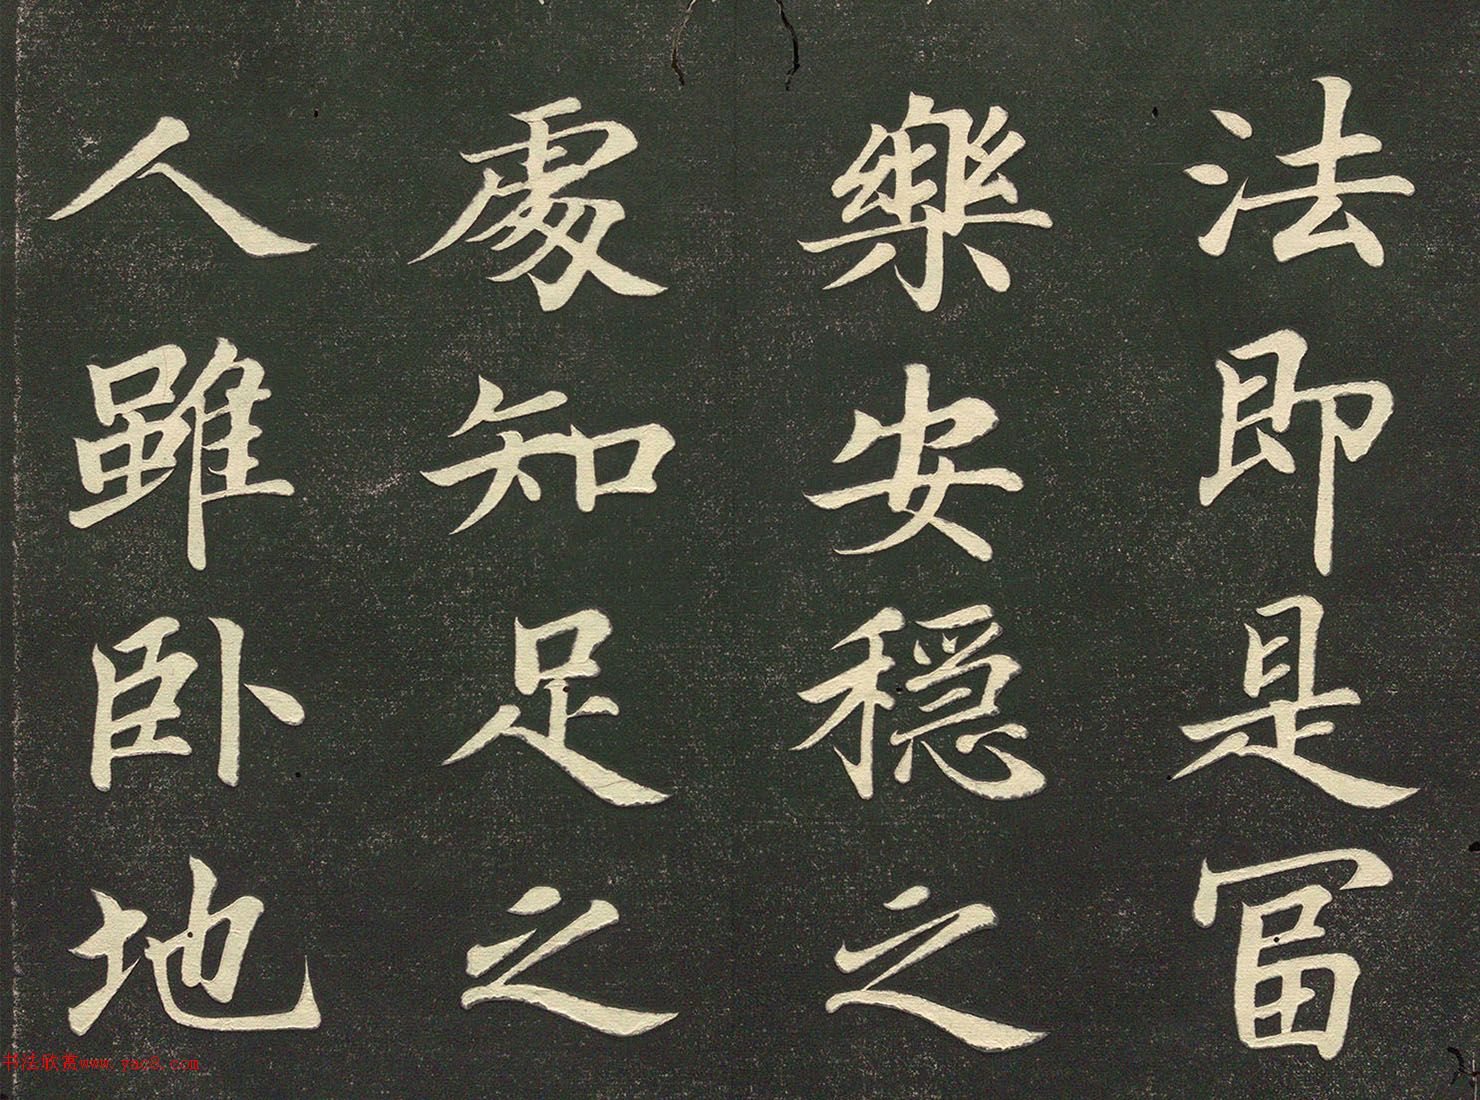 法即是冨
樂安穏之
處知足之
人雖卧地
书法欣赏www.yac8.com